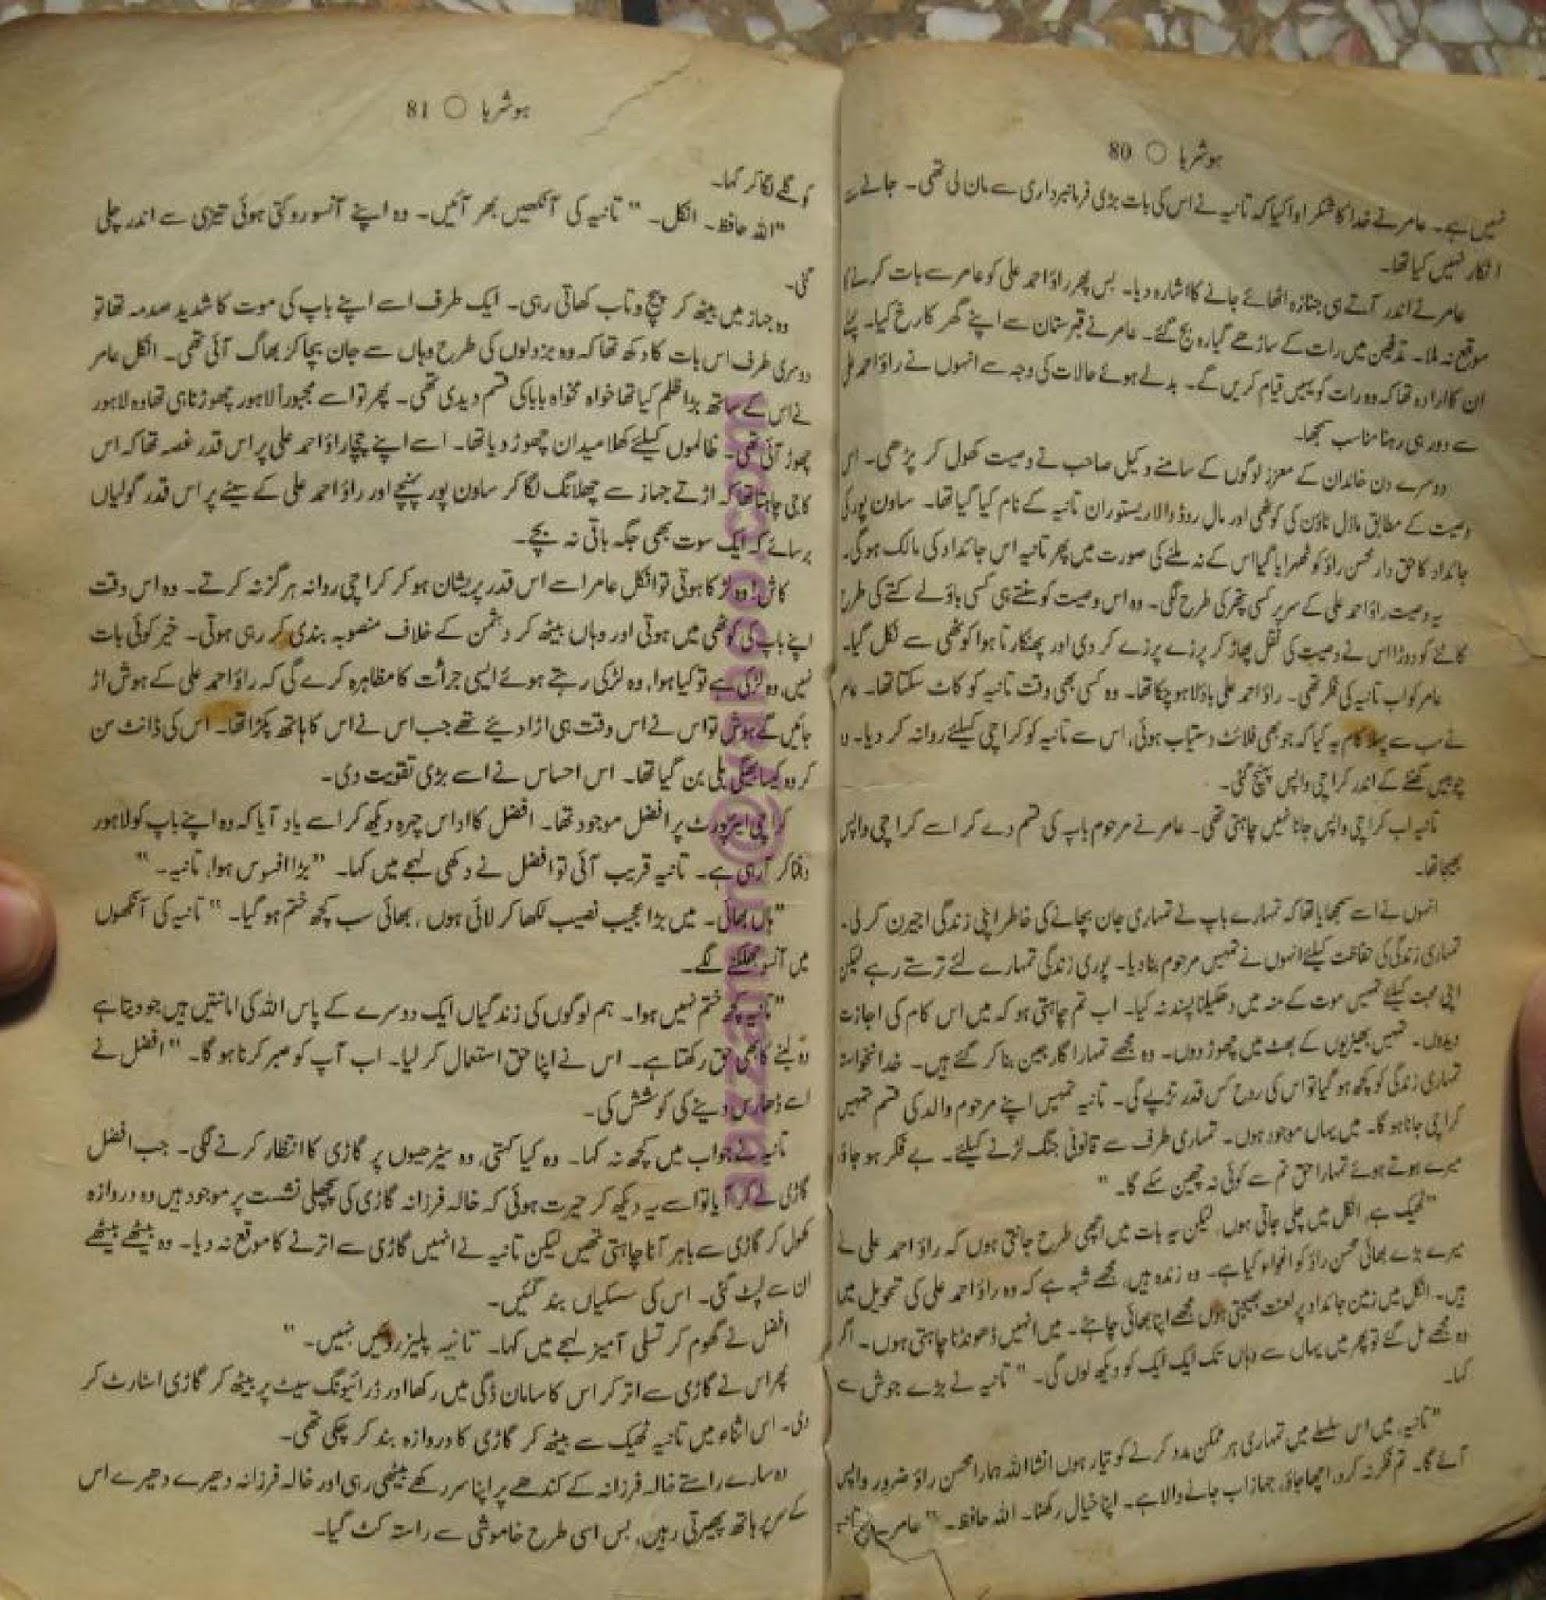 ہوشربا ○ 80
نہیں ہے۔ عامر نے خدا کا شکر ادا کیا کہ تانیہ نے اس کی بات بڑی فرمانبرداری سے مان لی تھی۔ جانے سے
انکار نہیں کیا تھا۔
عامر نے اندر آتے ہی جنازہ اٹھائے جانے کا اشارہ دیا۔ بس پھر راؤ احمد علی کو عامر سے بات کرنے کا
موقع نہ ملا۔ تدفین میں رات کے ساڑھے گیارہ بج گئے۔ عامر نے قبرستان سے اپنے گھر کا رخ کیا۔ پہلے
ان کا ارادہ تھا کہ وہ رات کو یہیں قیام کریں گے۔ بدلے ہوئے حالات کی وجہ سے انہوں نے راؤ احمد علی
سے دور ہی رہنا مناسب سمجھا۔
دوسرے دن خاندان کے معزز لوگوں کے سامنے وکیل صاحب نے وصیت کھول کر پڑھی۔ اس
وصیت کے مطابق ماڈل ٹاؤن کی کوٹھی اور مال روڈ والا ریستوران تانیہ کے نام کیا گیا تھا۔ ساون پور کی
جائداد کا حق دار محسن راؤ کو ٹھہرایا گیا اس کے نہ ملنے کی صورت میں پھر تانیہ اس جائداد کی مالک ہوگی۔
یہ وصیت راؤ احمد علی کے سر پر کسی پتھر کی طرح لگی۔ وہ اس وصیت کو سنتے ہی کسی باؤلے کتے کی طرح
کاٹنے کو دوڑا اس نے وصیت کی نقل پھاڑ کر پرزے پرزے کر دی اور پھنکارتا ہوا کوٹھی سے نکل گیا۔
عامر کو اب تانیہ کی فکر تھی۔ راؤ احمد علی باؤلا ہو چکا تھا۔ وہ کسی بھی وقت تانیہ کو کاٹ سکتا تھا۔ عامر
نے سب سے پہلا کام یہ کیا کہ جو بھی فلائٹ دستیاب ہوئی، اس سے تانیہ کو کراچی کیلئے روانہ کر دیا۔ وہ
چوبیس گھنٹے کے اندر کراچی واپس پہنچ گئی۔
تانیہ اب کراچی واپس جانا نہیں چاہتی تھی۔ عامر نے مرحوم باپ کی قسم دے کر اسے کراچی واپس
بھیجا تھا۔
انہوں نے اسے سمجھایا تھا کہ تمہارے باپ نے تمہاری جان بچانے کی خاطر اپنی زندگی اجیرن کر لی۔
تمہاری زندگی کی حفاظت کیلئے انہوں نے تمہیں مرحوم بنا دیا۔ پوری زندگی تمہارے لئے ترستے رہے لیکن
اپنی محبت کیلئے تمہیں موت کے منہ میں دھکیلنا پسند نہ کیا۔ اب تم چاہتی ہو کہ میں اس کام کی اجازت
دیدوں۔ تمہیں بھیڑیوں کے بھٹ میں چھوڑ دوں۔ وہ مجھے تمہارا گارجین بنا کر گئے ہیں۔ خدانخواستہ
تمہاری زندگی کو کچھ ہو گیا تو اس کی روح کس قدر تڑپے گی۔ تانیہ تمہیں اپنے مرحوم والد کی قسم تمہیں
کراچی جانا ہو گا۔ میں یہاں موجود ہوں۔ تمہاری طرف سے قانونی جنگ لڑنے کیلئے۔ بے فکر ہو جاؤ،
میرے ہوتے ہوئے تمہارا حق تم سے کوئی نہ چھین سکے گا۔"
"ٹھیک ہے، انکل میں چلی جاتی ہوں، لیکن یہ بات میں اچھی طرح جانتی ہوں کہ راؤ احمد علی نے
میرے بڑے بھائی محسن راؤ کو اغواء کیا ہے۔ وہ زندہ ہیں، مجھے شبہ ہے کہ وہ راؤ احمد علی کی تحویل میں
ہیں۔ انکل میں زمین جائداد پر لعنت بھیجتی ہوں مجھے اپنا بھائی چاہئے۔ میں انہیں ڈھونڈنا چاہتی ہوں۔ اگر
وہ مجھے مل گئے تو پھر میں یہاں سے وہاں تک ایک ایک کو دیکھ لوں گی۔" تانیہ نے بڑے جوش سے
کہا۔
"تانیہ، میں اس سلسلے میں تمہاری ہر ممکن مدد کرنے کو تیار ہوں انشااللہ ہمارا محسن راؤ ضرور واپس
آئے گا۔ تم فکر نہ کرو، اچھا جاؤ، جہاز اب جانے والا ہے۔ اپنا خیال رکھنا۔ اللہ حافظ۔" عامر نے تانیہ
ہوشربا ○ 81
کو گلے لگا کر کہا۔
"اللہ حافظ۔ انکل۔" تانیہ کی آنکھیں بھر آئیں۔ وہ اپنے آنسو روکتی ہوئی تیزی سے اندر چلی
گئی۔
وہ جہاز میں بیٹھ کر پیچ و تاب کھاتی رہی۔ ایک طرف اسے اپنے باپ کی موت کا شدید صدمہ تھا تو
دوسری طرف اس بات کا دکھ تھا کہ وہ بزدلوں کی طرح وہاں سے جان بچا کر بھاگ آئی تھی۔ انکل عامر
نے اس کے ساتھ بڑا ظلم کیا تھا خواہ مخواہ بابا کی قسم دیدی تھی۔ پھر تو اسے مجبوراً لاہور چھوڑنا ہی تھا وہ لاہور
چھوڑ آئی تھی۔ ظالموں کیلئے کھلا میدان چھوڑ دیا تھا۔ اسے اپنے چچا راؤ احمد علی پر اس قدر غصہ تھا کہ اس
کا جی چاہتا تھا کہ اڑتے جہاز سے چھلانگ لگا کر ساون پور پہنچے اور راؤ احمد علی کے سینے پر اس قدر گولیاں
برسائے کہ ایک سوت بھی جگہ باقی نہ بچے۔
کاش! وہ لڑکا ہوتی تو انکل عامر اسے اس قدر پریشان ہو کر کراچی روانہ ہرگز نہ کرتے۔ وہ اس وقت
اپنے باپ کی کوٹھی میں ہوتی اور وہاں بیٹھ کر دشمن کے خلاف منصوبہ بندی کر رہی ہوتی۔ خیر کوئی بات
نہیں، وہ لڑکی ہے تو کیا ہوا، وہ لڑکی رہتے ہوئے ایسی جرأت کا مظاہرہ کرے گی کہ راؤ احمد علی کے ہوش اڑ
جائیں گے ہوش تو اس نے اس وقت ہی اڑا دیئے تھے جب اس نے اس کا ہاتھ پکڑا تھا۔ اس کی ڈانٹ سن
کر وہ کیسا بھیگی بلی بن گیا تھا۔ اس احساس نے اسے بڑی تقویت دی۔
کراچی ایئرپورٹ پر افضل موجود تھا۔ افضل کا اداس چہرہ دیکھ کر اسے یاد آیا کہ وہ اپنے باپ کو لاہور
دفنا کر آ رہی ہے۔ تانیہ قریب آئی تو افضل نے دکھی لہجے میں کہا۔ "بڑا افسوس ہوا، تانیہ۔"
"ہاں بھائی۔ میں بڑا عجیب نصیب لکھا کر لائی ہوں، بھائی سب کچھ ختم ہو گیا۔" تانیہ کی آنکھوں
میں آنسو جھلکنے لگے۔
"تانیہ کچھ ختم نہیں ہوا۔ ہم لوگوں کی زندگیاں ایک دوسرے کے پاس اللہ کی امانتیں ہیں، جو دیتا ہے
وہ لینے کا بھی حق رکھتا ہے۔ اس نے اپنا حق استعمال کر لیا۔ اب آپ کو صبر کرنا ہو گا۔" افضل نے
اسے ڈھارس دینے کی کوشش کی۔
تانیہ نے جواب میں کچھ نہ کہا۔ وہ کیا کہتی، وہ سیڑھیوں پر گاڑی کا انتظار کرنے لگی۔ جب افضل
گاڑی لے کر آیا تو اسے یہ دیکھ کر حیرت ہوئی کہ خالہ فرزانہ گاڑی کی پچھلی نشست پر موجود ہیں وہ دروازہ
کھول کر گاڑی سے باہر آنا چاہتی تھیں لیکن تانیہ نے انہیں گاڑی سے اترنے کا موقع نہ دیا۔ وہ بیٹھے بیٹھے
ان سے لپٹ گئی۔ اس کی سسکیاں بند گئیں۔
افضل نے گھوم کر تسلی آمیز لہجے میں کہا۔ "تانیہ پلیز روئیں نہیں۔"
پھر اس نے گاڑی سے اتر کر اس کا سامان ڈگی میں رکھا اور ڈرائیونگ سیٹ پر بیٹھ کر گاڑی اسٹارٹ کر
دی۔ اس اثناء میں تانیہ ٹھیک سے بیٹھ کر گاڑی کا دروازہ بند کر چکی تھی۔
وہ سارے راستے خالہ فرزانہ کے کندھے پر اپنا سر رکھے بیٹھی رہی اور خالہ فرزانہ دھیرے دھیرے اس
کے سر پر ہاتھ پھیرتی رہیں، بس اسی طرح خاموشی سے راستہ کٹ گیا۔